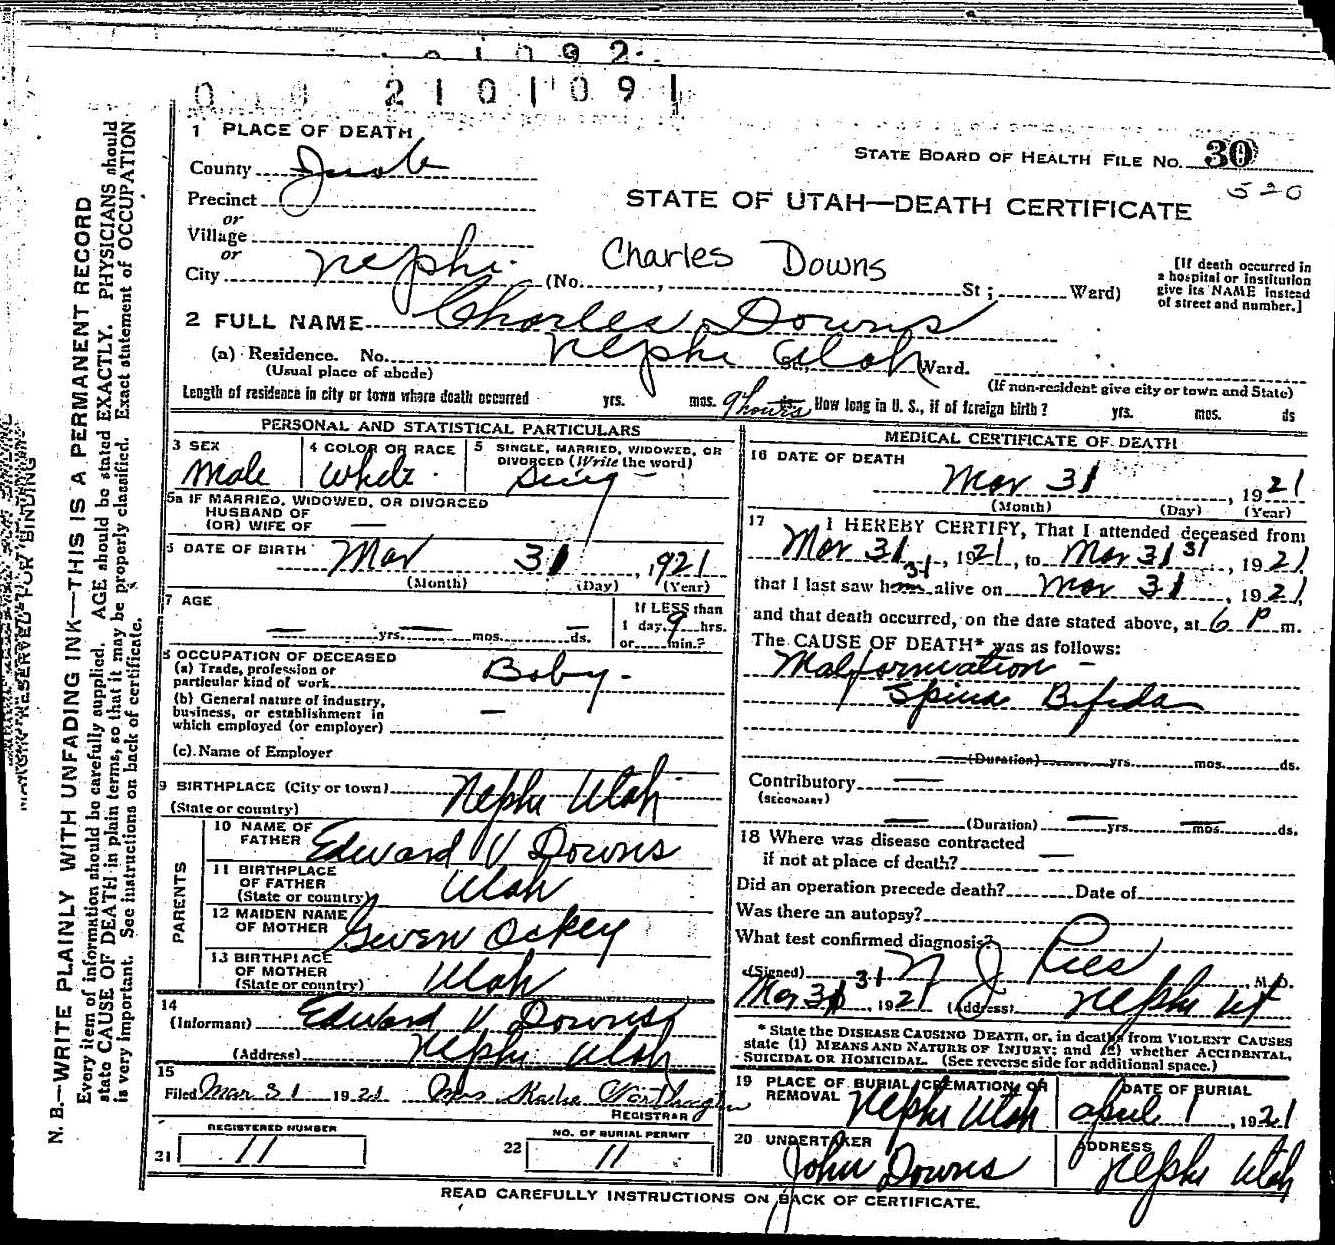 2101091
1 PLACE OF DEATH
County Juab
STATE BOARD OF HEALTH FILE NO. 30
520
Precinct
or
STATE OF UTAH—DEATH CERTIFICATE
Village
or
City Nephi (No. , St ; Ward)
Charles Downs
[If death occurred in
a hospital or institution
give its NAME instead
of street and number.]
2 FULL NAME Charles Downs
(a) Residence. No. Nephi Utah St., Ward.
(Usual place of abode)
(If non-resident give city or town and State)
Length of residence in city or town where death occurred yrs. mos. 9 hours ds. How long in U. S., if of foreign birth? yrs. mos. ds
PERSONAL AND STATISTICAL PARTICULARS
3 SEX
Male
4 COLOR OR RACE
White
5 SINGLE, MARRIED, WIDOWED, OR
DIVORCED (Write the word)
Sing
5a IF MARRIED, WIDOWED, OR DIVORCED
HUSBAND OF
(OR) WIFE OF —
6 DATE OF BIRTH Mar 31, 1921
(Month) (Day) (Year)
7 AGE
— yrs. — mos. — ds.
If LESS than
1 day, 9 hrs.
or min.?
8 OCCUPATION OF DECEASED
(a) Trade, profession or
particular kind of work Baby -
(b) General nature of industry,
business, or establishment in
which employed (or employer) —
(c) Name of Employer
9 BIRTHPLACE (City or town) Nephi Utah
(State or country)
PARENTS
10 NAME OF
FATHER Edward V Downs
11 BIRTHPLACE
OF FATHER
(State or country) Utah
12 MAIDEN NAME
OF MOTHER Gwen Ockey
13 BIRTHPLACE
OF MOTHER
(State or country) Utah
14
(Informant) Edward V Downs
(Address) Nephi Utah
15
Filed Mar 31 1921 Mrs
REGISTRAR
REGISTERED NUMBER
21 11
NO. OF BURIAL PERMIT
22 11
MEDICAL CERTIFICATE OF DEATH
16 DATE OF DEATH
Mar 31, 1921
(Month) (Day) (Year)
17 I HEREBY CERTIFY, That I attended deceased from
Mar 31, 1921, to Mar 31 31, 1921
31
that I last saw him alive on Mar 31, 1921,
and that death occurred, on the date stated above, at 6 P m.
The CAUSE OF DEATH* was as follows:
Malformation -
Spina Bifida
(Duration) yrs. mos. ds.
Contributory —
(SECONDARY)
— (Duration) — yrs. — mos. ds.
18 Where was disease contracted
if not at place of death? —
Did an operation precede death? Date of
Was there an autopsy?
What test confirmed diagnosis?
(Signed) J Rees M. D.
31
Mar 31, 1921 (Address) Nephi Ut
* State the DISEASE CAUSING DEATH, or, in deaths from VIOLENT CAUSES
state (1) MEANS AND NATURE OF INJURY; and (2) whether ACCIDENTAL,
SUICIDAL OR HOMICIDAL. (See reverse side for additional space.)
19 PLACE OF BURIAL, CREMATION, OR
REMOVAL Nephi Utah
DATE OF BURIAL
April 1, 1921
20 UNDERTAKER
John Downs
ADDRESS
Nephi Utah
READ CAREFULLY INSTRUCTIONS ON BACK OF CERTIFICATE.
MARGIN RESERVED FOR BINDING
N. B.—WRITE PLAINLY WITH UNFADING INK—THIS IS A PERMANENT RECORD
Every item of information should be carefully supplied. AGE should be stated EXACTLY. PHYSICIANS should
state CAUSE OF DEATH in plain terms, so that it may be properly classified. Exact statement of OCCUPATION
is very important. See instructions on back of certificate.